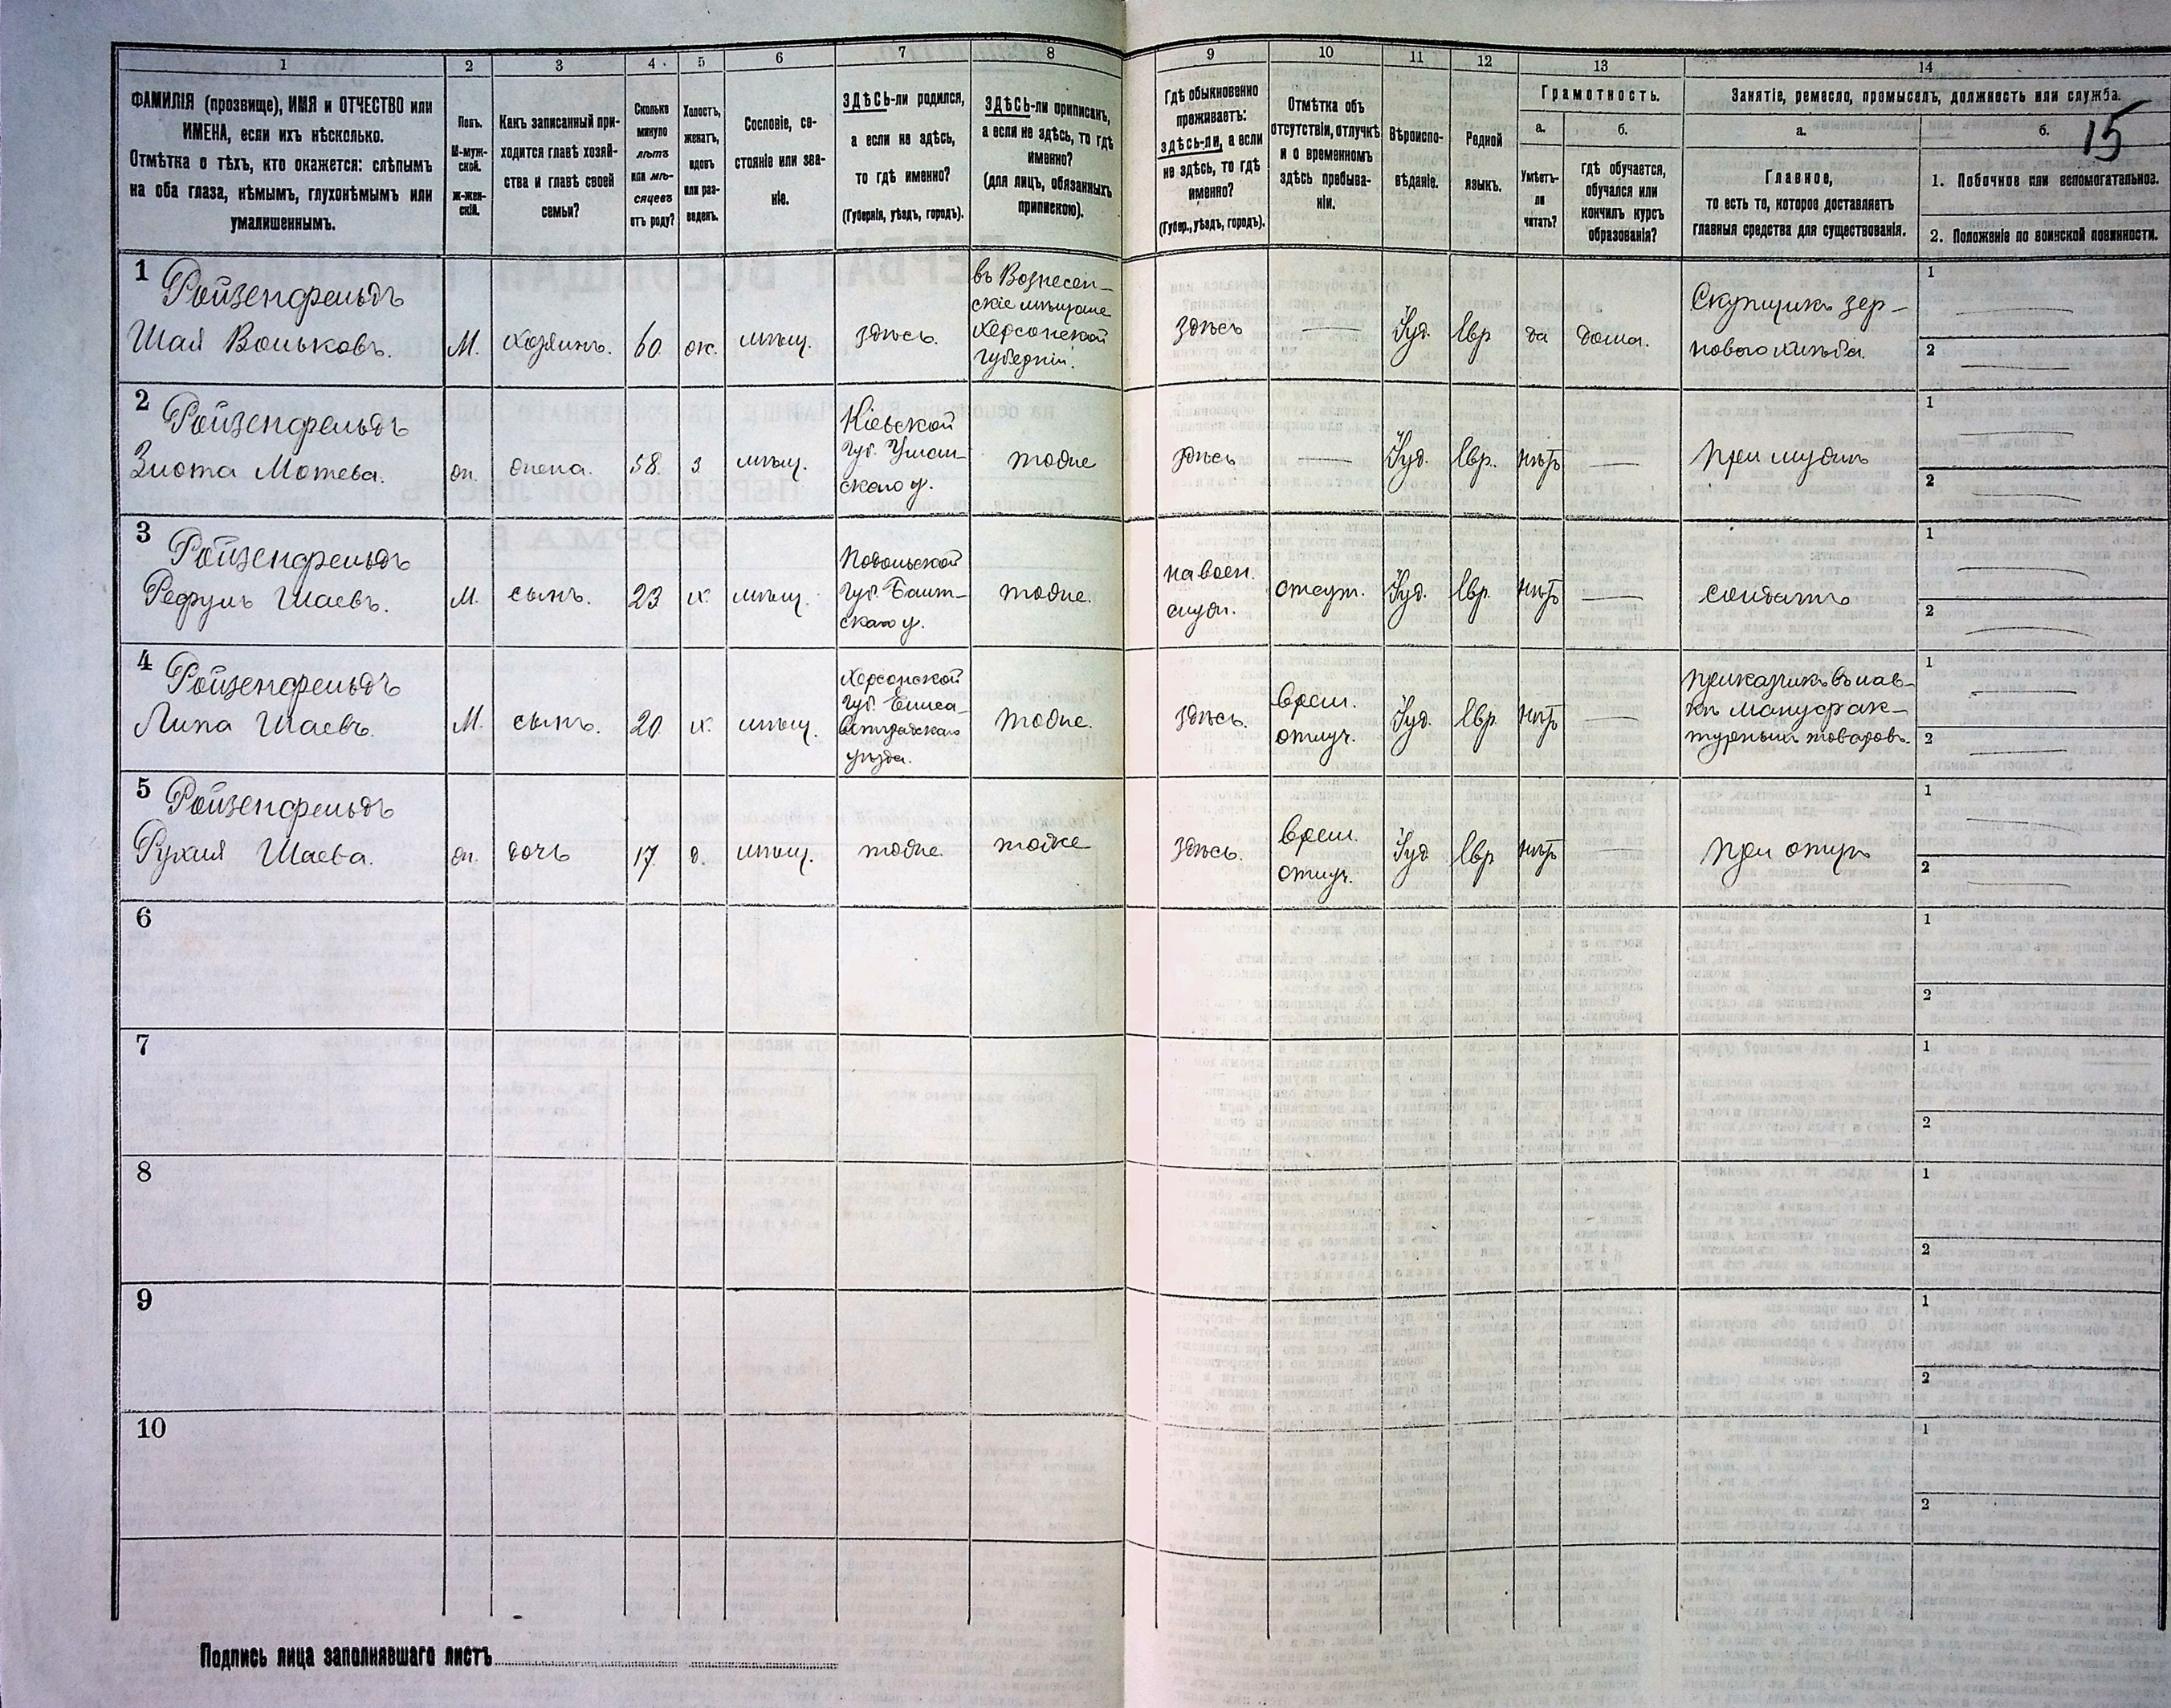 1 2 3 4 5 6 7 8 9 10 11 12 13 14
ФАМИЛІЯ (прозвище), ИМЯ и ОТЧЕСТВО или
ИМЕНА, если ихъ нѣсколько.
Отмѣтка о тѣхъ, кто окажется: слѣпымъ
на оба глаза, нѣмымъ, глухонѣмымъ или
умалишеннымъ.
Полъ.
М-муж-
ской.
Ж-жен-
скій.
Какъ записанный при-
ходится главѣ хозяй-
ства и главѣ своей
семьи?
Сколько
минуло
лѣтъ
или мѣ-
сяцевъ
отъ роду?
Холостъ,
женатъ,
вдовъ
или раз-
веденъ.
Сословіе, со-
стояніе или зва-
ніе.
ЗДѢСЬ-ли родился,
а если не здѣсь,
то гдѣ именно?
(Губернія, уѣздъ, городъ).
ЗДѢСЬ-ли приписанъ,
а если не здѣсь, то гдѣ
именно?
(для лицъ, обязанныхъ
припискою).
Гдѣ обыкновенно
проживаетъ:
здѣсь-ли, а если
не здѣсь, то гдѣ
именно?
(Губер., уѣздъ, городъ).
Отмѣтка объ
отсутствіи, отлучкѣ
и о временномъ
здѣсь пребыва-
ніи.
Вѣроиспо-
вѣданіе.
Родной
языкъ.
Грамотность.
а.
Умѣетъ-
ли
читать?
б.
гдѣ обучается,
обучался или
кончилъ курсъ
образованія?
Занятіе, ремесло, промыселъ, должность или служба.
а.
Главное,
то есть то, которое доставляетъ
главныя средства для существованія.
б.
15
1. Побочное или вспомогательное.
2. Положеніе по воинской повинности.
1
Ройзенфельдъ
Шая Вольковъ.
М.
хозяинъ.
60.
ж.
мѣщ.
здѣсь.
въ Вознесен-
скіе мѣщане
Херсонской
губерніи.
здѣсь
—
Іуд.
Евр
да
дома.
Скупщикъ зер-
нового хлѣба.
1 —
2 —
2
Ройзенфельдъ
Злота Мотева.
ж.
жена.
58.
з
мѣщ.
Кіевской
губ. Уман-
скаго у.
тоже
здѣсь
—
Іуд.
Евр.
нѣтъ
—
при мужѣ
1 —
2 —
3
Ройзенфельдъ
Рефулъ Шаевъ.
М.
сынъ.
23
х.
мѣщ.
Подольской
губ. Балт-
скаго у.
тоже.
на воен.
служ.
отсут.
Іуд.
Евр.
нѣтъ
—
солдатъ
1 —
2 —
4
Ройзенфельдъ
Липа Шаевъ.
М.
сынъ.
20.
х.
мѣщ.
Херсонской
губ. Елиса-
ветградскаго
уѣзда.
тоже.
здѣсь.
врем.
отлуч.
Іуд.
Евр.
нѣтъ
—
приказчикъ въ лав-
кѣ мануфак-
турныхъ товаровъ.
1 —
2 —
5
Ройзенфельдъ
Рухля Шаева.
ж.
дочь
17.
д.
мѣщ.
тоже.
тоже
здѣсь.
врем.
отлуч.
Іуд
Евр
нѣтъ
—
при отцѣ
1 —
2 —
6
1
2
7
1
2
8
1
2
9
1
2
10
1
2
Подпись лица заполнявшаго листъ